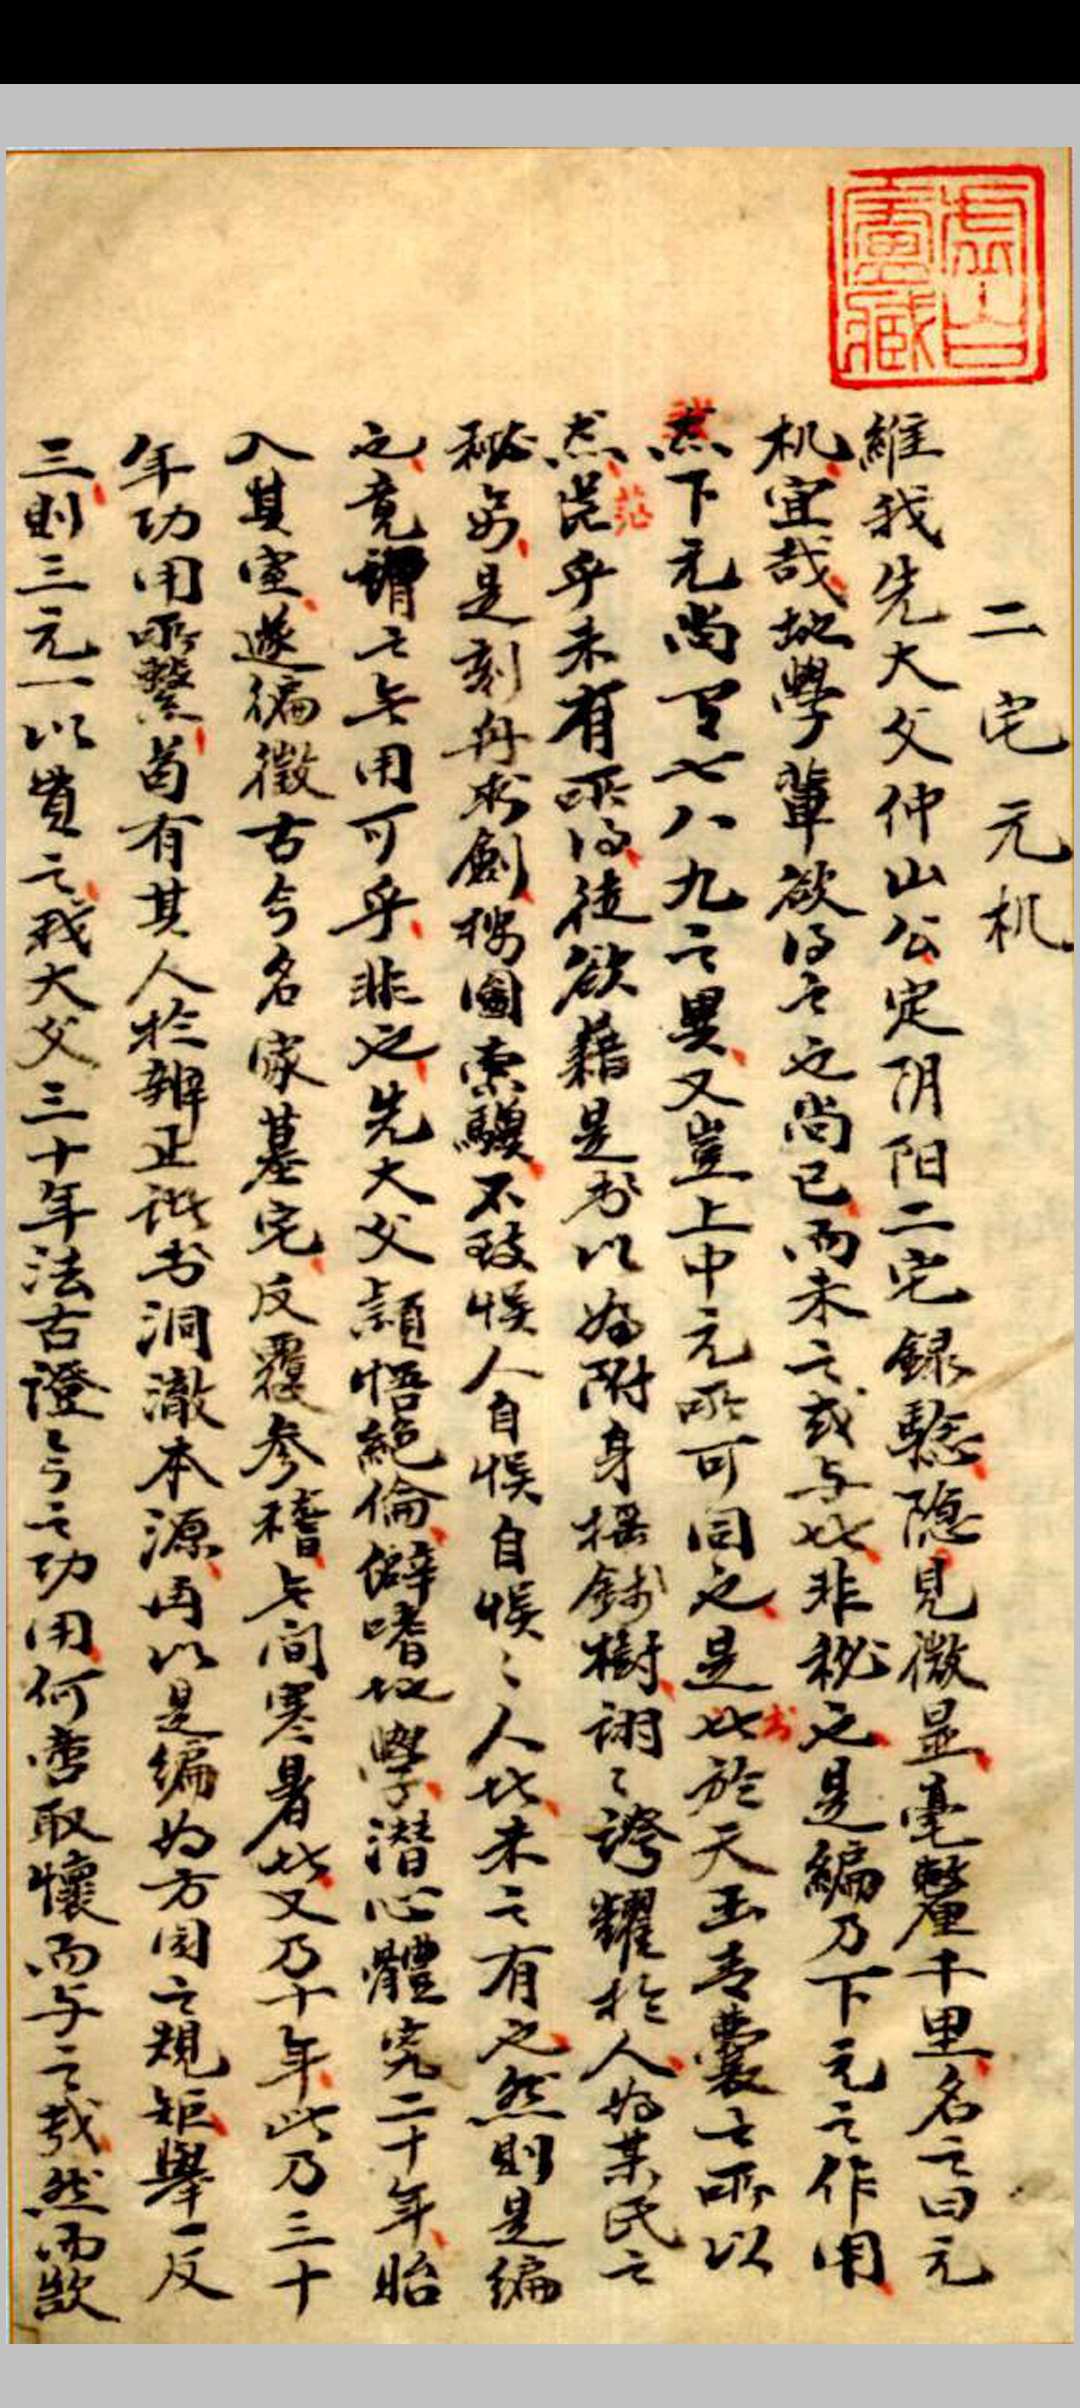 二宅元机
維我先大父仲山公定阴阳二宅録驗隐見微显毫釐千里名之曰元
机宜哉地學輩欲得之也尚已而未之或与此非秘之是编乃下元之作用
然下元尚有七八九之異又豈上中元所可同之是此书於天玉青囊之所以
然茫乎未有所得徒欲藉是书以為附身摇錢樹诩〻誇耀於人為某氏之
秘妙是刻舟求劍按圖索驥不致悮人自悮自悮〻人此未之有也然則是编
之竟謂之无用可乎非也先大父颖悟絕倫僻嗜地學潛心體究二十年始
入其室遂徧徵古今名家墓宅反覆参稽无间寒暑此又乃十年此乃三十
年功用所繫苟有其人於辨正诸书洞澈本源再以是编为方圆之規矩舉一反
三則三元一以贯之我大父三十年法古證今之功用何啻取懷而与之哉然而歆